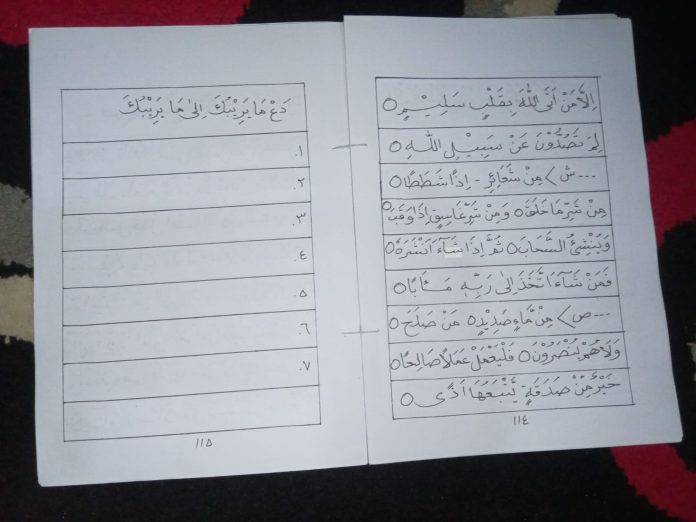 اِلَّا مَنْ اَتَى اللّٰهَ بِقَلْبٍ سَلِيْمٍ ○
لِمَ تَصُدُّوْنَ عَنْ سَبِيْلِ اللّٰهِ ○
---ش > مِنْ شَعَآئِرِ - اِذًا شَطَطًا ○
مِنْ شَرِّ مَا خَلَقَ ○ وَمِنْ شَرِّ غَاسِقٍ اِذَا وَقَبَ ○
وَيُنْشِئُ السَّحَابَ ○ ثُمَّ اِذَا شَآءَ اَنْشَرَهٗ ○
فَمَنْ شَآءَ اتَّخَذَ اِلىٰ رَبِّهٖ مَـٔابًا ○
---ص > مِنْ مَّآءٍ صَدِيْدٍ ○ مَنْ صَلَحَ ○
وَلَا هُمْ يُنْصَرُوْنَ ○ فَلْيَعْمَلْ عَمَلًا صَالِحًا ○
خَيْرٌ مِّنْ صَدَقَةٍ يَّتْبَعُهَا اَذًى ○
١١٤
دَعْ مَا يَرِيْبُكَ اِلىٰ مَا يَرِيْبُكَ
١.
٢.
٣.
٤.
٥.
٦.
٧.
١١٥